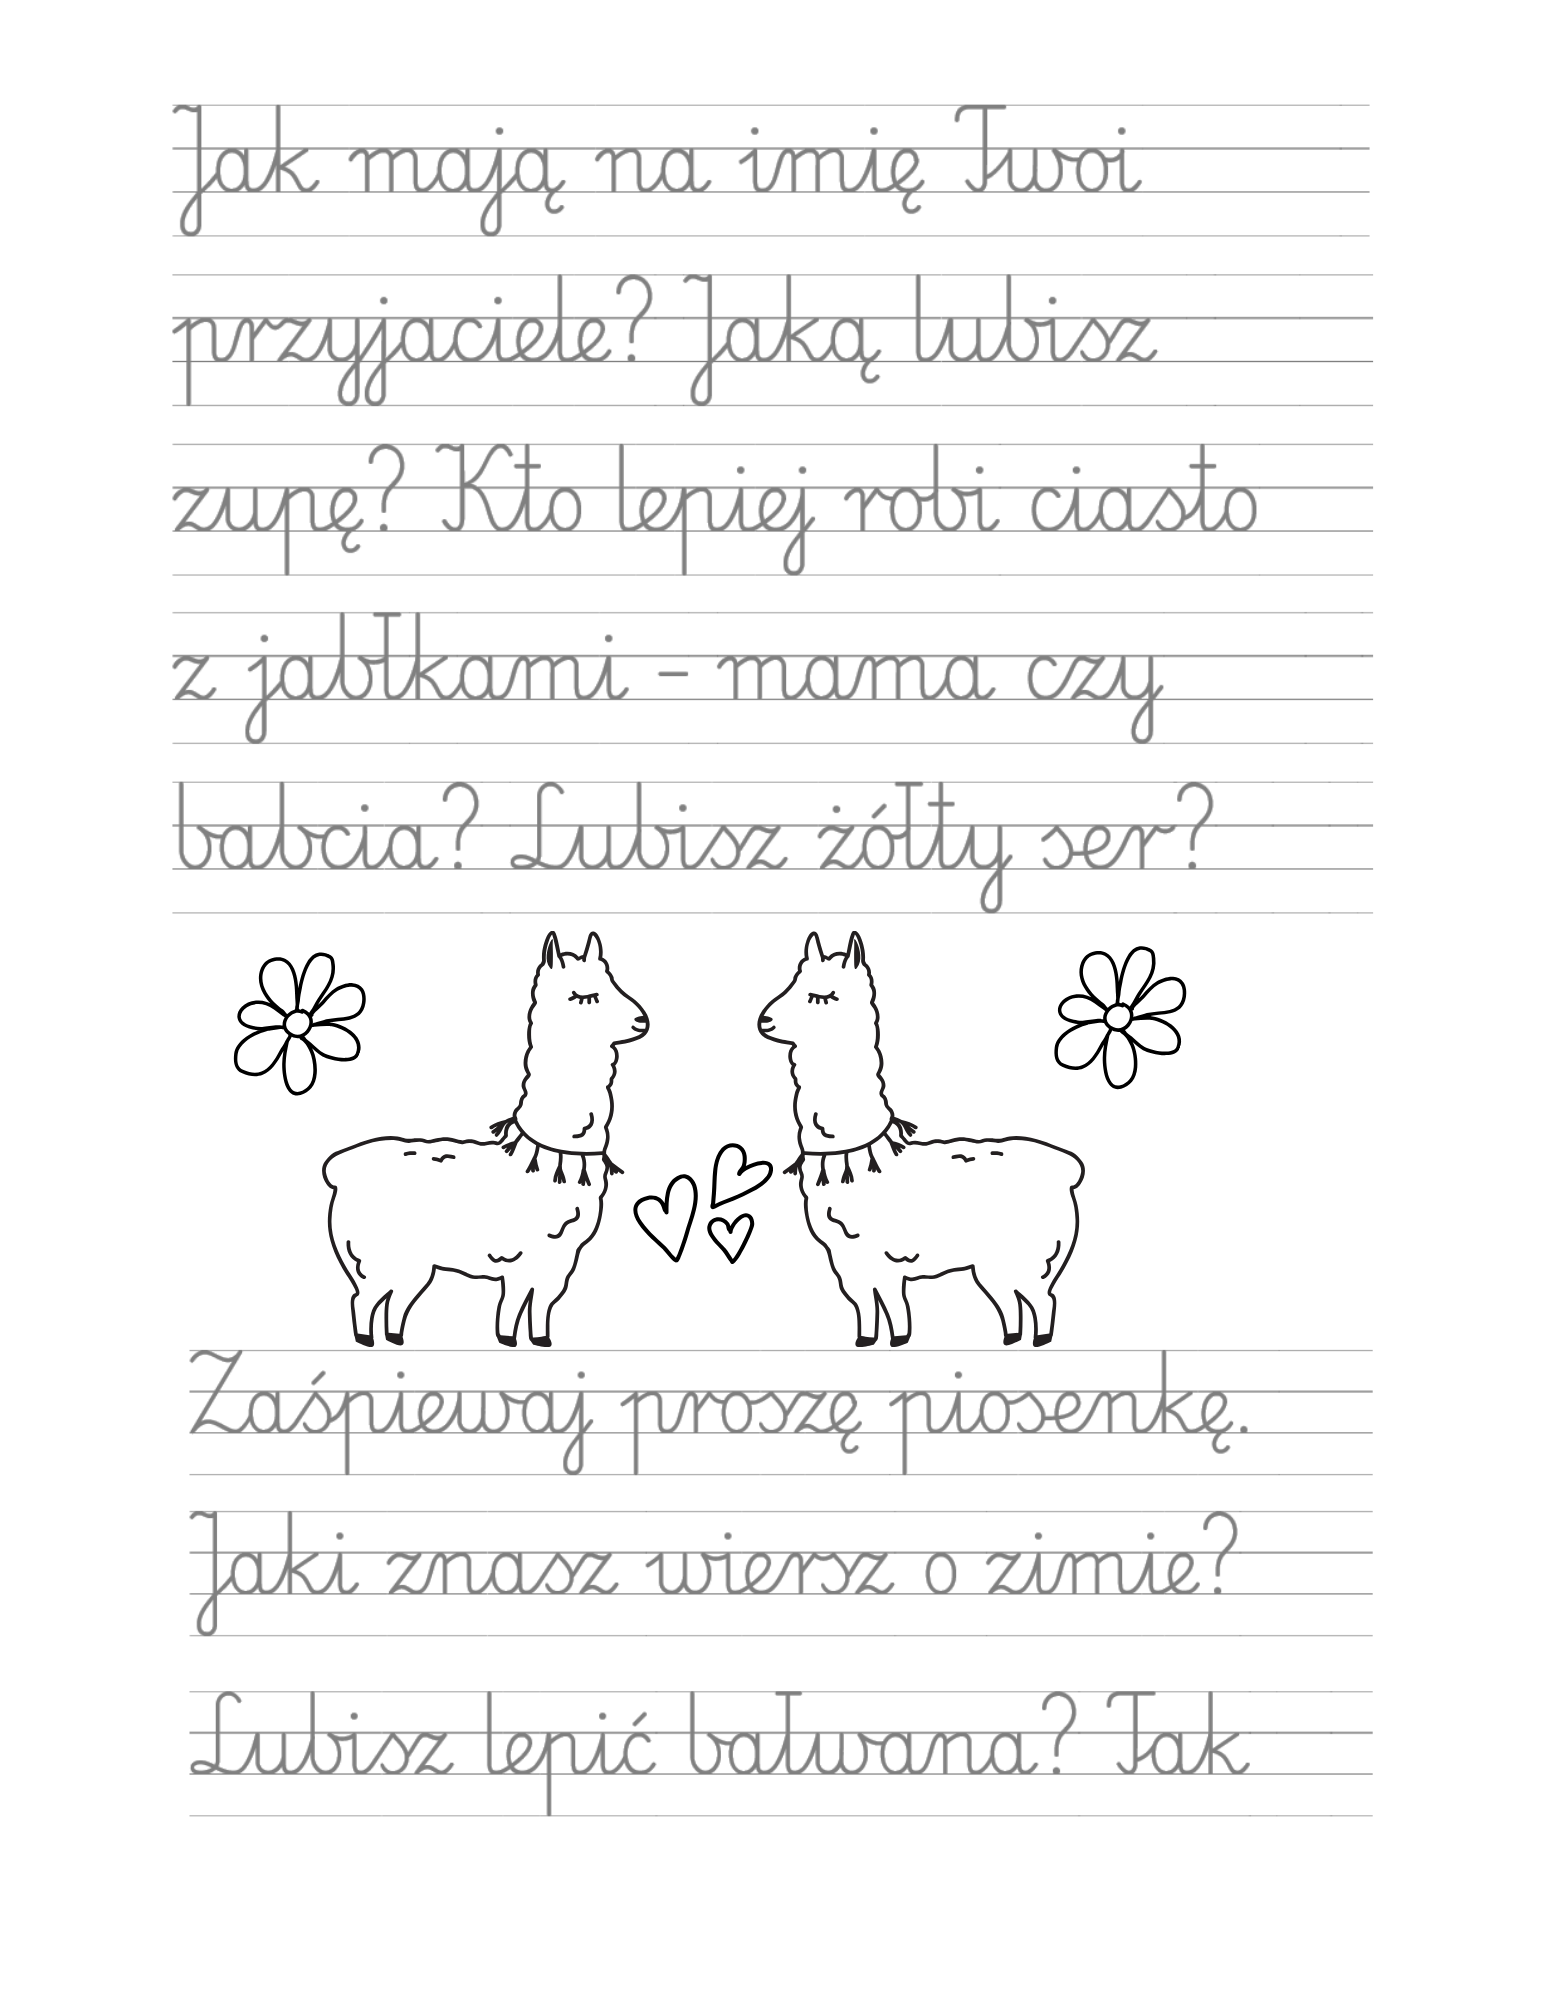 Jak mają na imię Twoi
przyjaciele? Jaką lubisz
zupę? Kto lepiej robi ciasto
z jabłkami - mama czy
babcia? Lubisz żółty ser?
Zaśpiewaj proszę piosenkę.
Jaki znasz wiersz o zimie?
Lubisz lepić bałwana? Tak